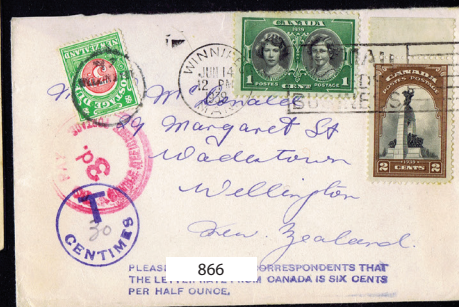 POSTAGE DUE
NEW ZEALAND
WINNI
JUN 14
12 PM
CANADA
1939
POSTES POSTAGE
1 CENT 1
CANADA
POSTES POSTAGE
1939
2 CENTS 2
M
McDonald
29 Margaret St
Wadestown
Wellington
New Zealand.
3D.
T
30
CENTIMES
866
PLEAS CORRESPONDENTS THAT
THE LETTER RATE FROM CANADA IS SIX CENTS
PER HALF OUNCE.